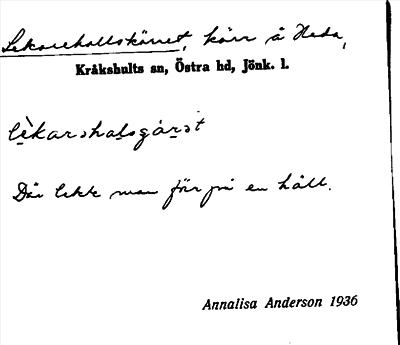 Lekarehallskärret, kärr å Heda,
Kråkshults sn, Östra hd, Jönk. l.
lèkarɔhalsgárɔt
Där lekte man förr på en häll.
Annalisa Anderson 1936